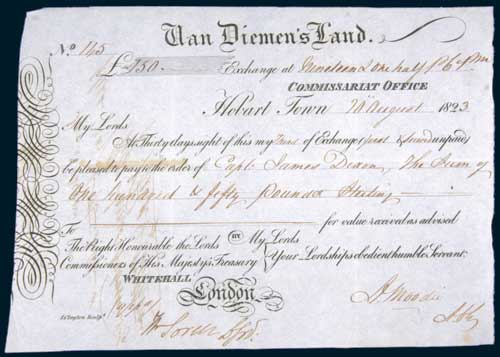 Van Diemen's Land.
No. 145
£150. Exchange at Nineteen & one half P Ct Pm
COMMISSARIAT OFFICE
Hobart Town 20 August 1823
My Lords
At Thirty days sight of this my Third of Exchange (first & second unpaid)
be pleased to pay to the order of Capt. James Dixon, the Sum of
One hundred & fifty Pounds Sterling
for value received as advised
To
The Right Honorable the Lords (in) My Lords
Commissioners of His Majesty's Treasury Your Lordships obedient humble Servant
WHITEHALL
London
Wm Sorell A Moodie